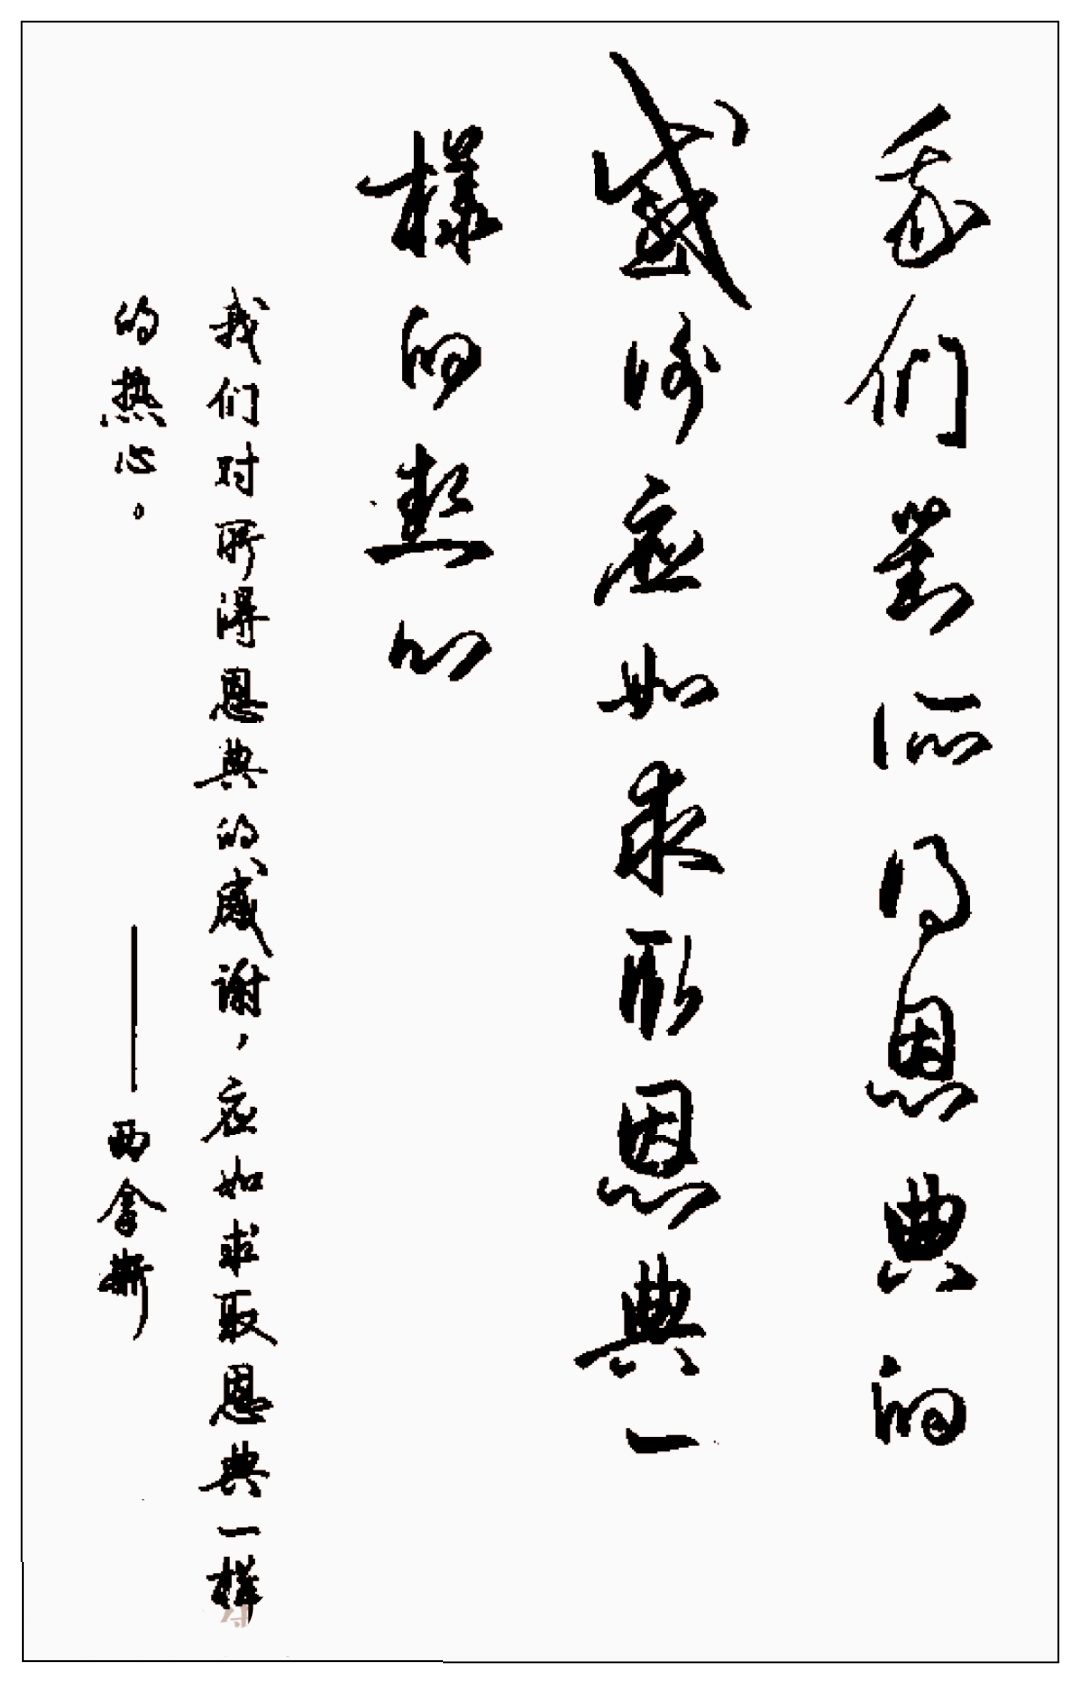 我们對所得恩典的
感谢应如求取恩典一
樣的热心
我们对所得恩典的感谢，应如求取恩典一样
的热心。
——西拿斯